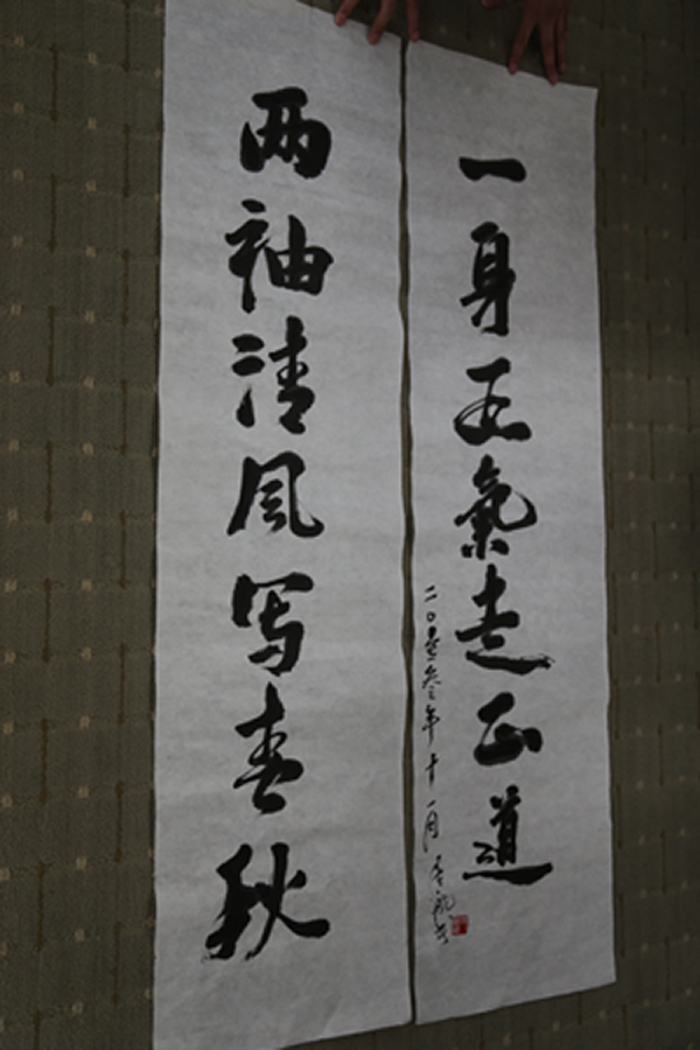 一身正氣走正道
两袖清风写春秋
二〇壹叁年十一月